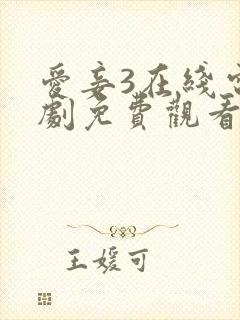 愛妾3在綫
劇免費觀看
王媛可